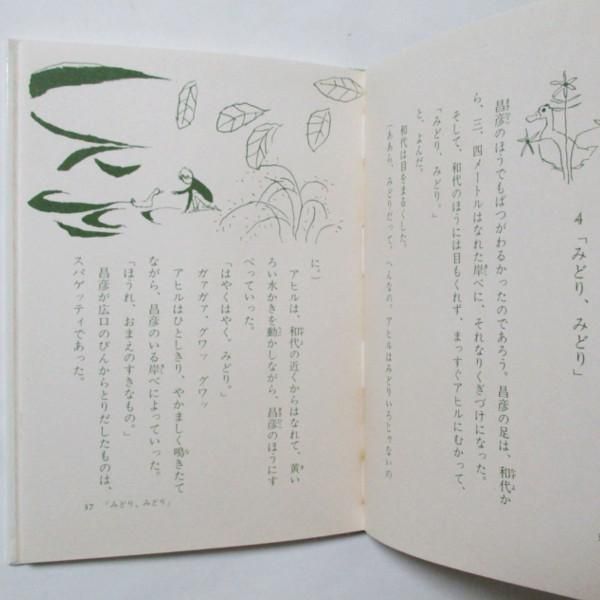 4 「みどり、みどり」
昌彦のほうでもばつがわるかったのであろう。昌彦の足は、和代か
ら、三、四メートルはなれた岸べに、それなりくぎづけになった。
そして、和代のほうには目もくれず、まっすぐアヒルにむかって、
「みどり、みどり。」
と、よんだ。
和代は目をまるくした。
(ああら、みどりだって。へんなの。アヒルはみどりいろじゃないの
に。)
アヒルは、和代の近くからはなれて、黄い
ろい水かきを動かしながら、昌彦のほうにす
べっていった。
「はやくはやく。みどり。」
ガァガァ、グワッ グワッ
アヒルはひとしきり、やかましく鳴きたて
ながら、昌彦のいる岸べによっていった。
「ほうれ、おまえのすきなもの。」
昌彦が広口のびんからとりだしたものは、
スパゲッティであった。
37 「みどり、みどり」